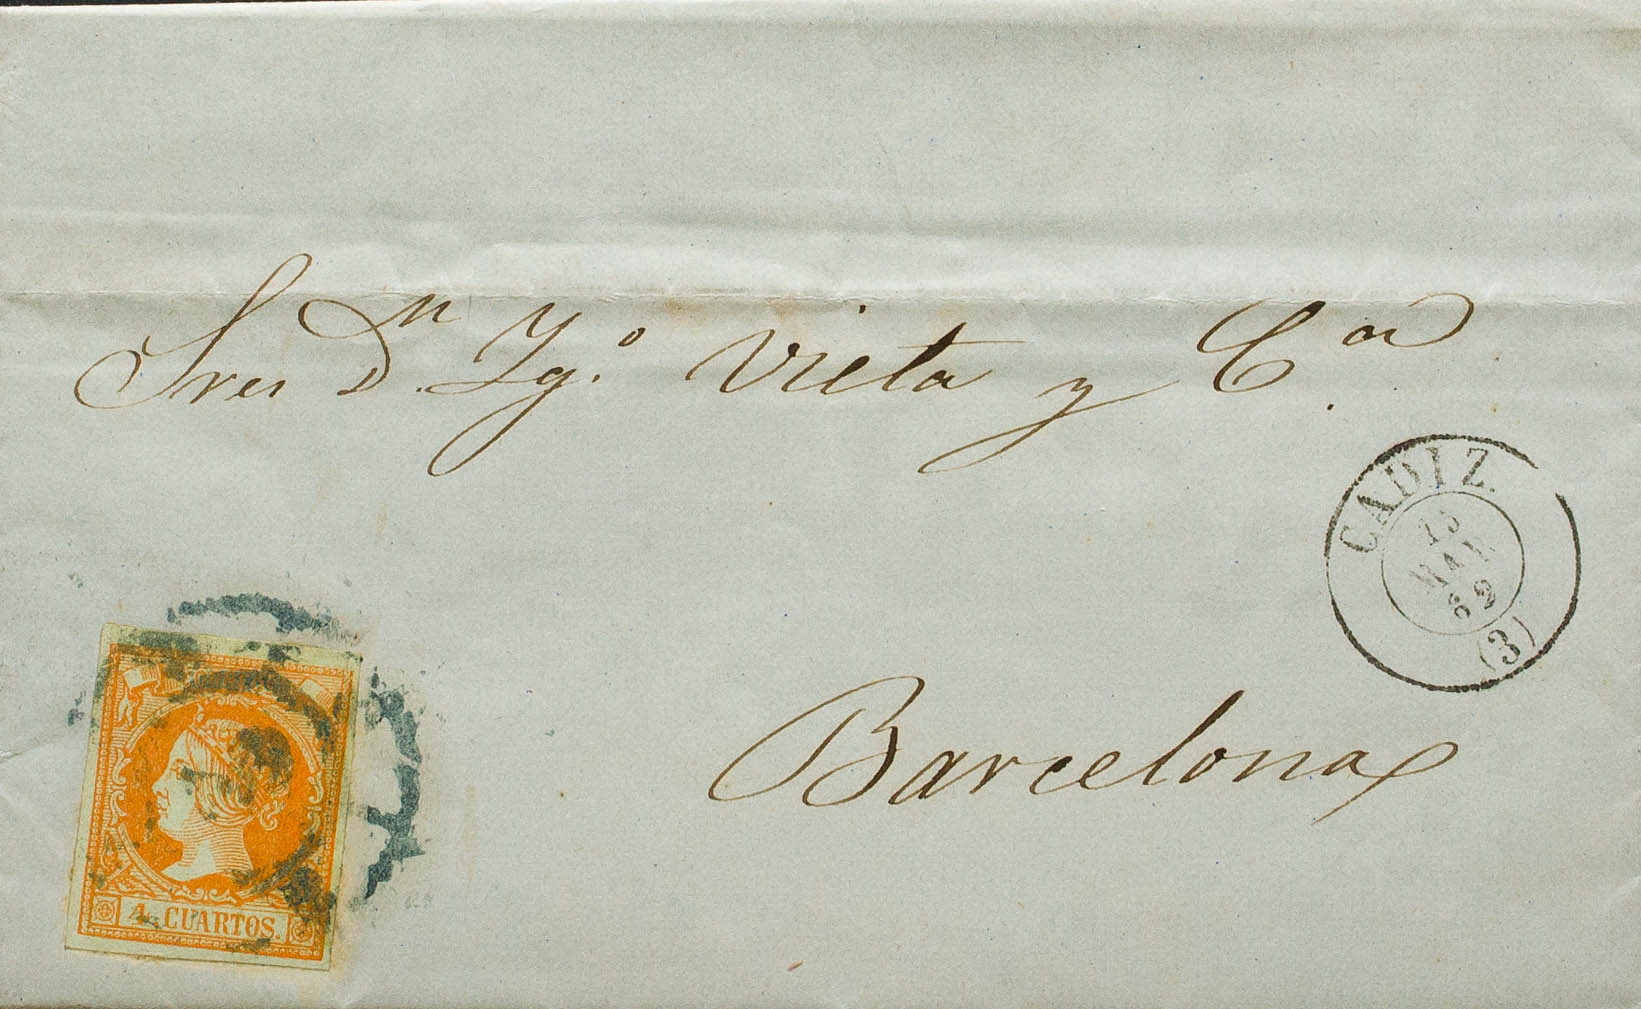 Sres Dn. Ygo. Vieta y Ca.
CADIZ.
MAR
62
(3)
Barcelona
4 CUARTOS.